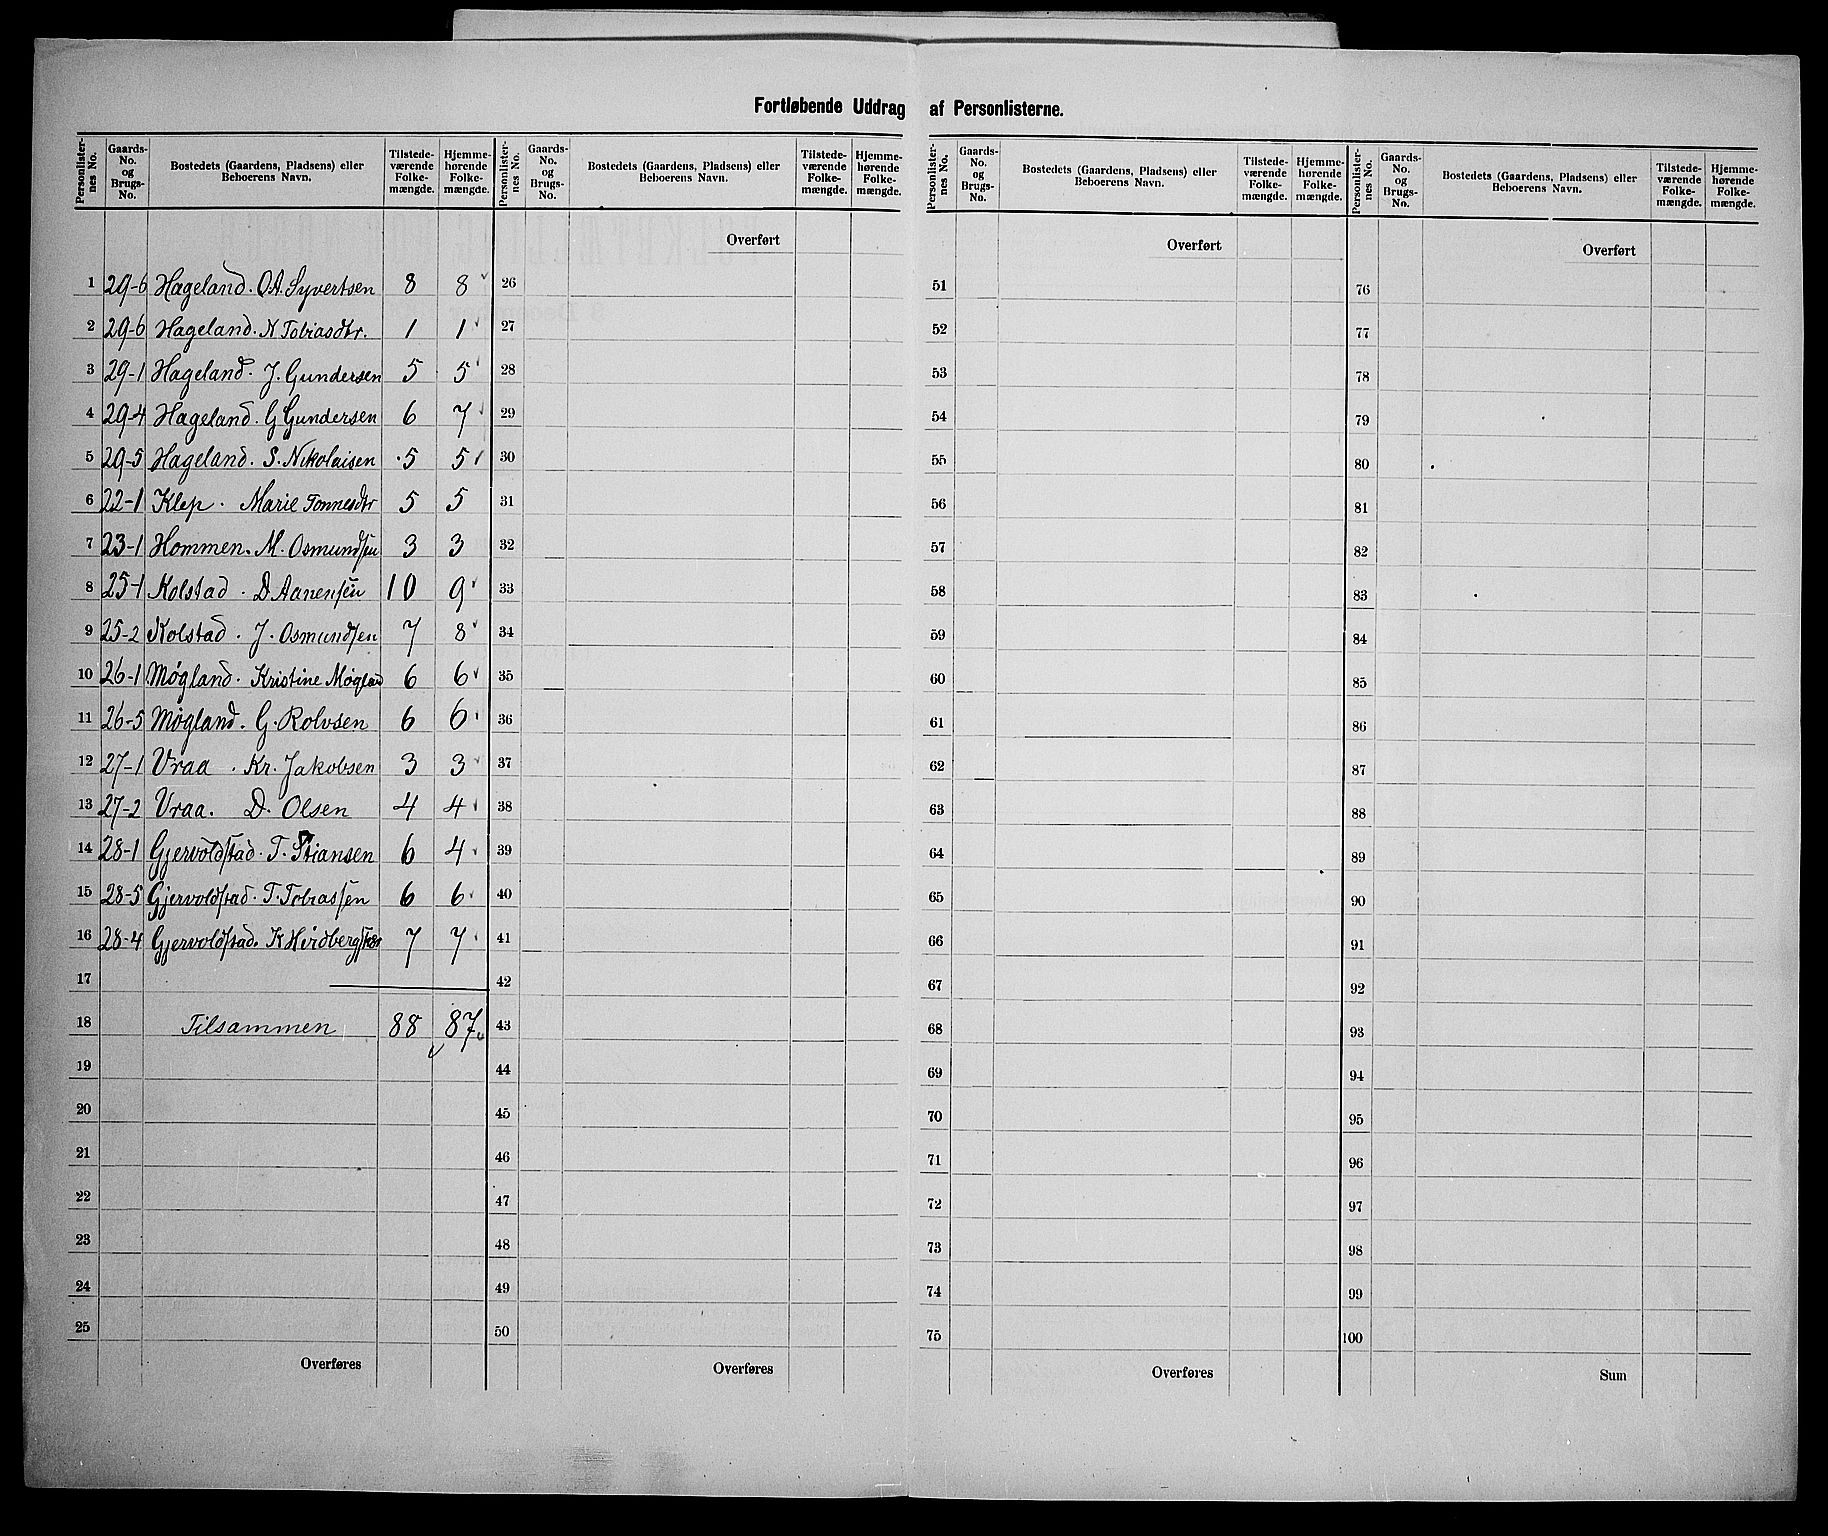 Fortløbende Uddrag af Personlisterne.
Personlisternes No. Gaards-No. og Brugs-No. Bostedets (Gaardens, Pladsens) eller Beboerens Navn. Tilstedeværende Folkemængde. Hjemmehørende Folkemængde. Personlisternes No. Gaards-No. og Brugs-No. Bostedets (Gaardens, Pladsens) eller Beboerens Navn. Tilstedeværende Folkemængde. Hjemmehørende Folkemængde. Personlisternes No. Gaards-No. og Brugs-No. Bostedets (Gaardens, Pladsens) eller Beboerens Navn. Tilstedeværende Folkemængde. Hjemmehørende Folkemængde. Personlisternes No. Gaards-No. og Brugs-No. Bostedets (Gaardens, Pladsens) eller Beboerens Navn. Tilstedeværende Folkemængde. Hjemmehørende Folkemængde.
Overført Overført Overført
1 29-6 Hageland. O.A. Syvertsen 8 8 26 51 76
2 29-6 Hageland. N Tobiasdtr. 1 1 27 52 77
3 29-1 Hageland. J. Gundersen 5 5 28 53 78
4 29-4 Hageland. G Gundersen 6 7 29 54 79
5 29-5 Hageland. S. Nikolaisen 5 5 30 55 80
6 22-1 Klep. Marie Tonnesdtr 5 5 31 56 81
7 23-1 Hommen. M. Osmundsen 3 3 32 57 82
8 25-1 Kolstad. D. Aanensen 10 9 33 58 83
9 25-2 Kolstad. J. Osmundsen 7 8 34 59 84
10 26-1 Møgland. Kristine Møgland 6 6 35 60 85
11 26-5 Møgland. G. Rolvsen 6 6 36 61 86
12 27-1 Vraa. Kr. Jakobsen 3 3 37 62 87
13 27-2 Vraa. D. Olsen 4 4 38 63 88
14 28-1 Gjervoldstad. T. Stiansen 6 4 39 64 89
15 28-5 Gjervoldstad. T. Tobiassen 6 6 40 65 90
16 28-4 Gjervoldstad. K 7 7 41 66 91
17 42 67 92
18 Tilsammen 88 87 43 68 93
19 44 69 94
20 45 70 95
21 46 71 96
22 47 72 97
23 48 73 98
24 49 74 99
25 50 75 100
Overføres Overføres Overføres Sum